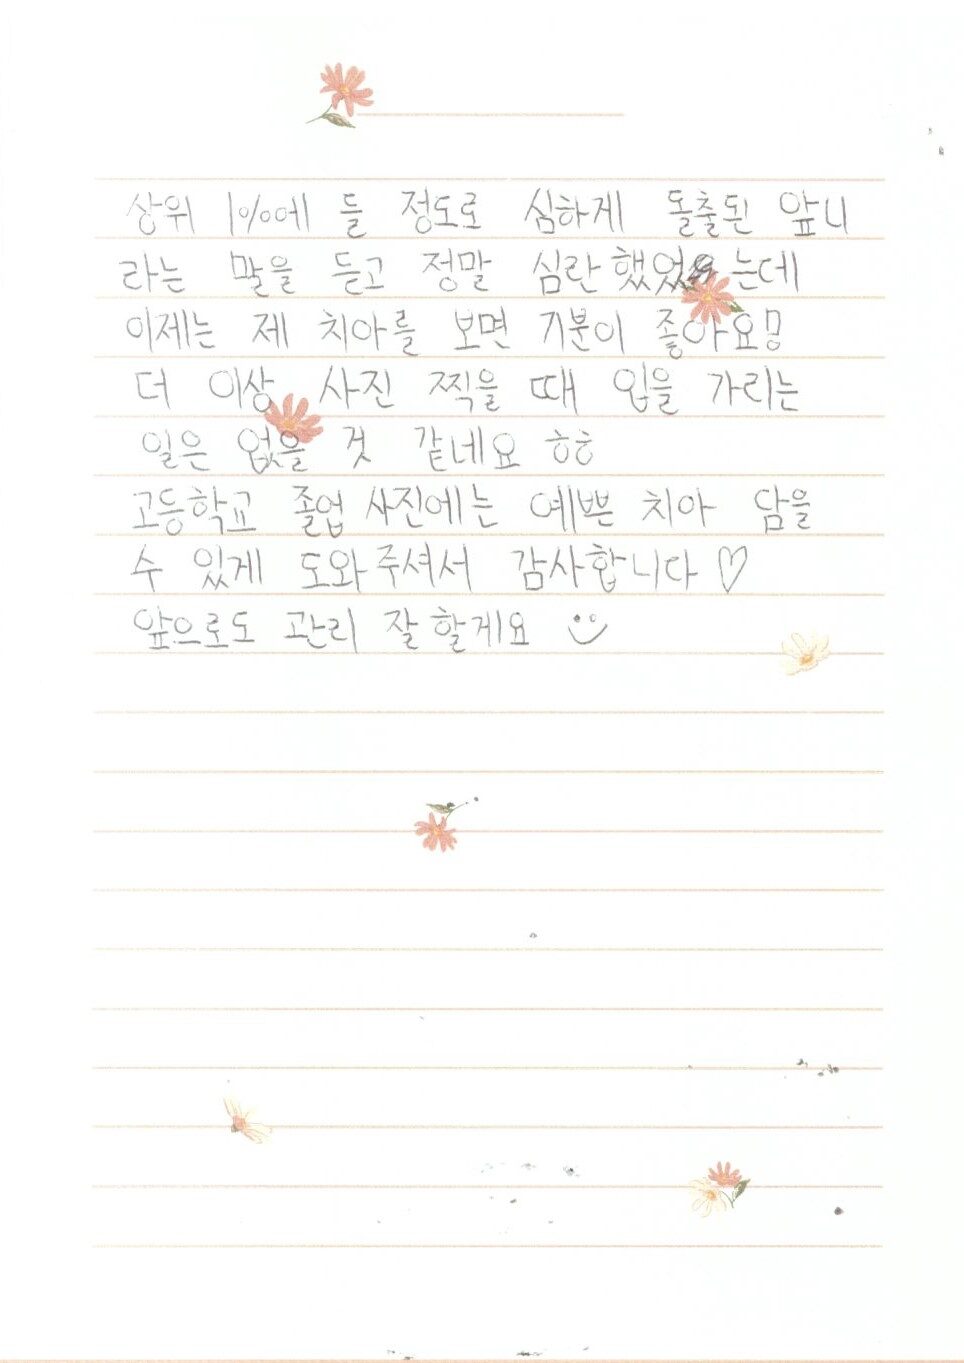 상위 1%에 들 정도로 심하게 돌출된 앞니
라는 말을 듣고 정말 심란했었는데
이제는 제 치아를 보면 기분이 좋아요!
더 이상 사진 찍을 때 입을 가리는
일은 없을 것 같네요 ㅎㅎ
고등학교 졸업사진에는 예쁜 치아 담을
수 있게 도와주셔서 감사합니다 ♡
앞으로도 관리 잘할게요 :)